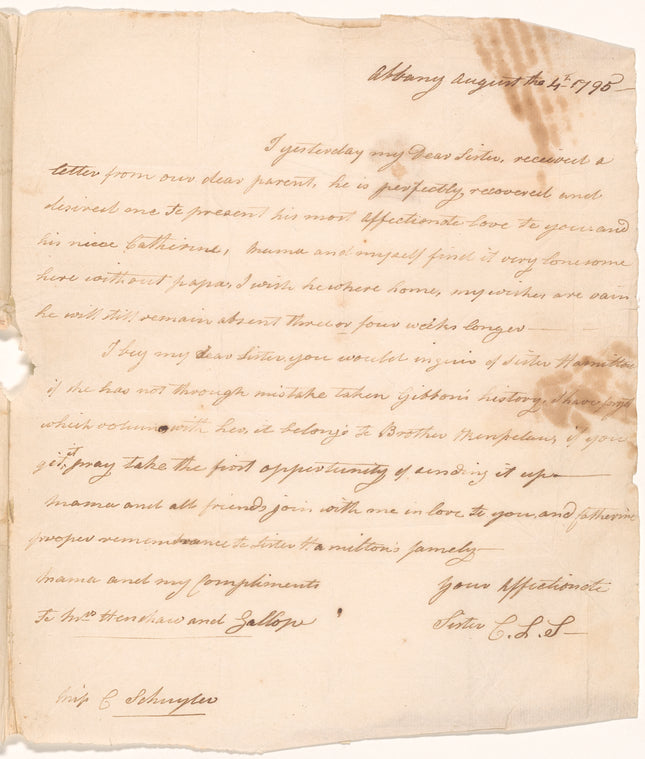 Albany August the 4th 1795
I yesterday my Dear Sister, received a
letter from our dear parent, he is perfectly recovered and
desired me to present his most affectionate love to you and
his niece Catherine, Mama and myself find it very lonesome
here without papa, I wish he where home, my wishes are vain
he will still remain absent three or four weeks longer
I beg my dear Sister, you would inquire of Sister Hamilton
if she has not through mistake taken Gibbon's history, I have forgot
which volume with her, it belongs to Brother you
get it pray take the first opportunity of sending it up
Mama and all friends join with me in love to you, and Catherine
proper remembrance to Sister Hamilton's famely
Mama and my Compliments
your affectionate
to Mrs Henshaw and
Sister C. L. S
Miss C Schuyler